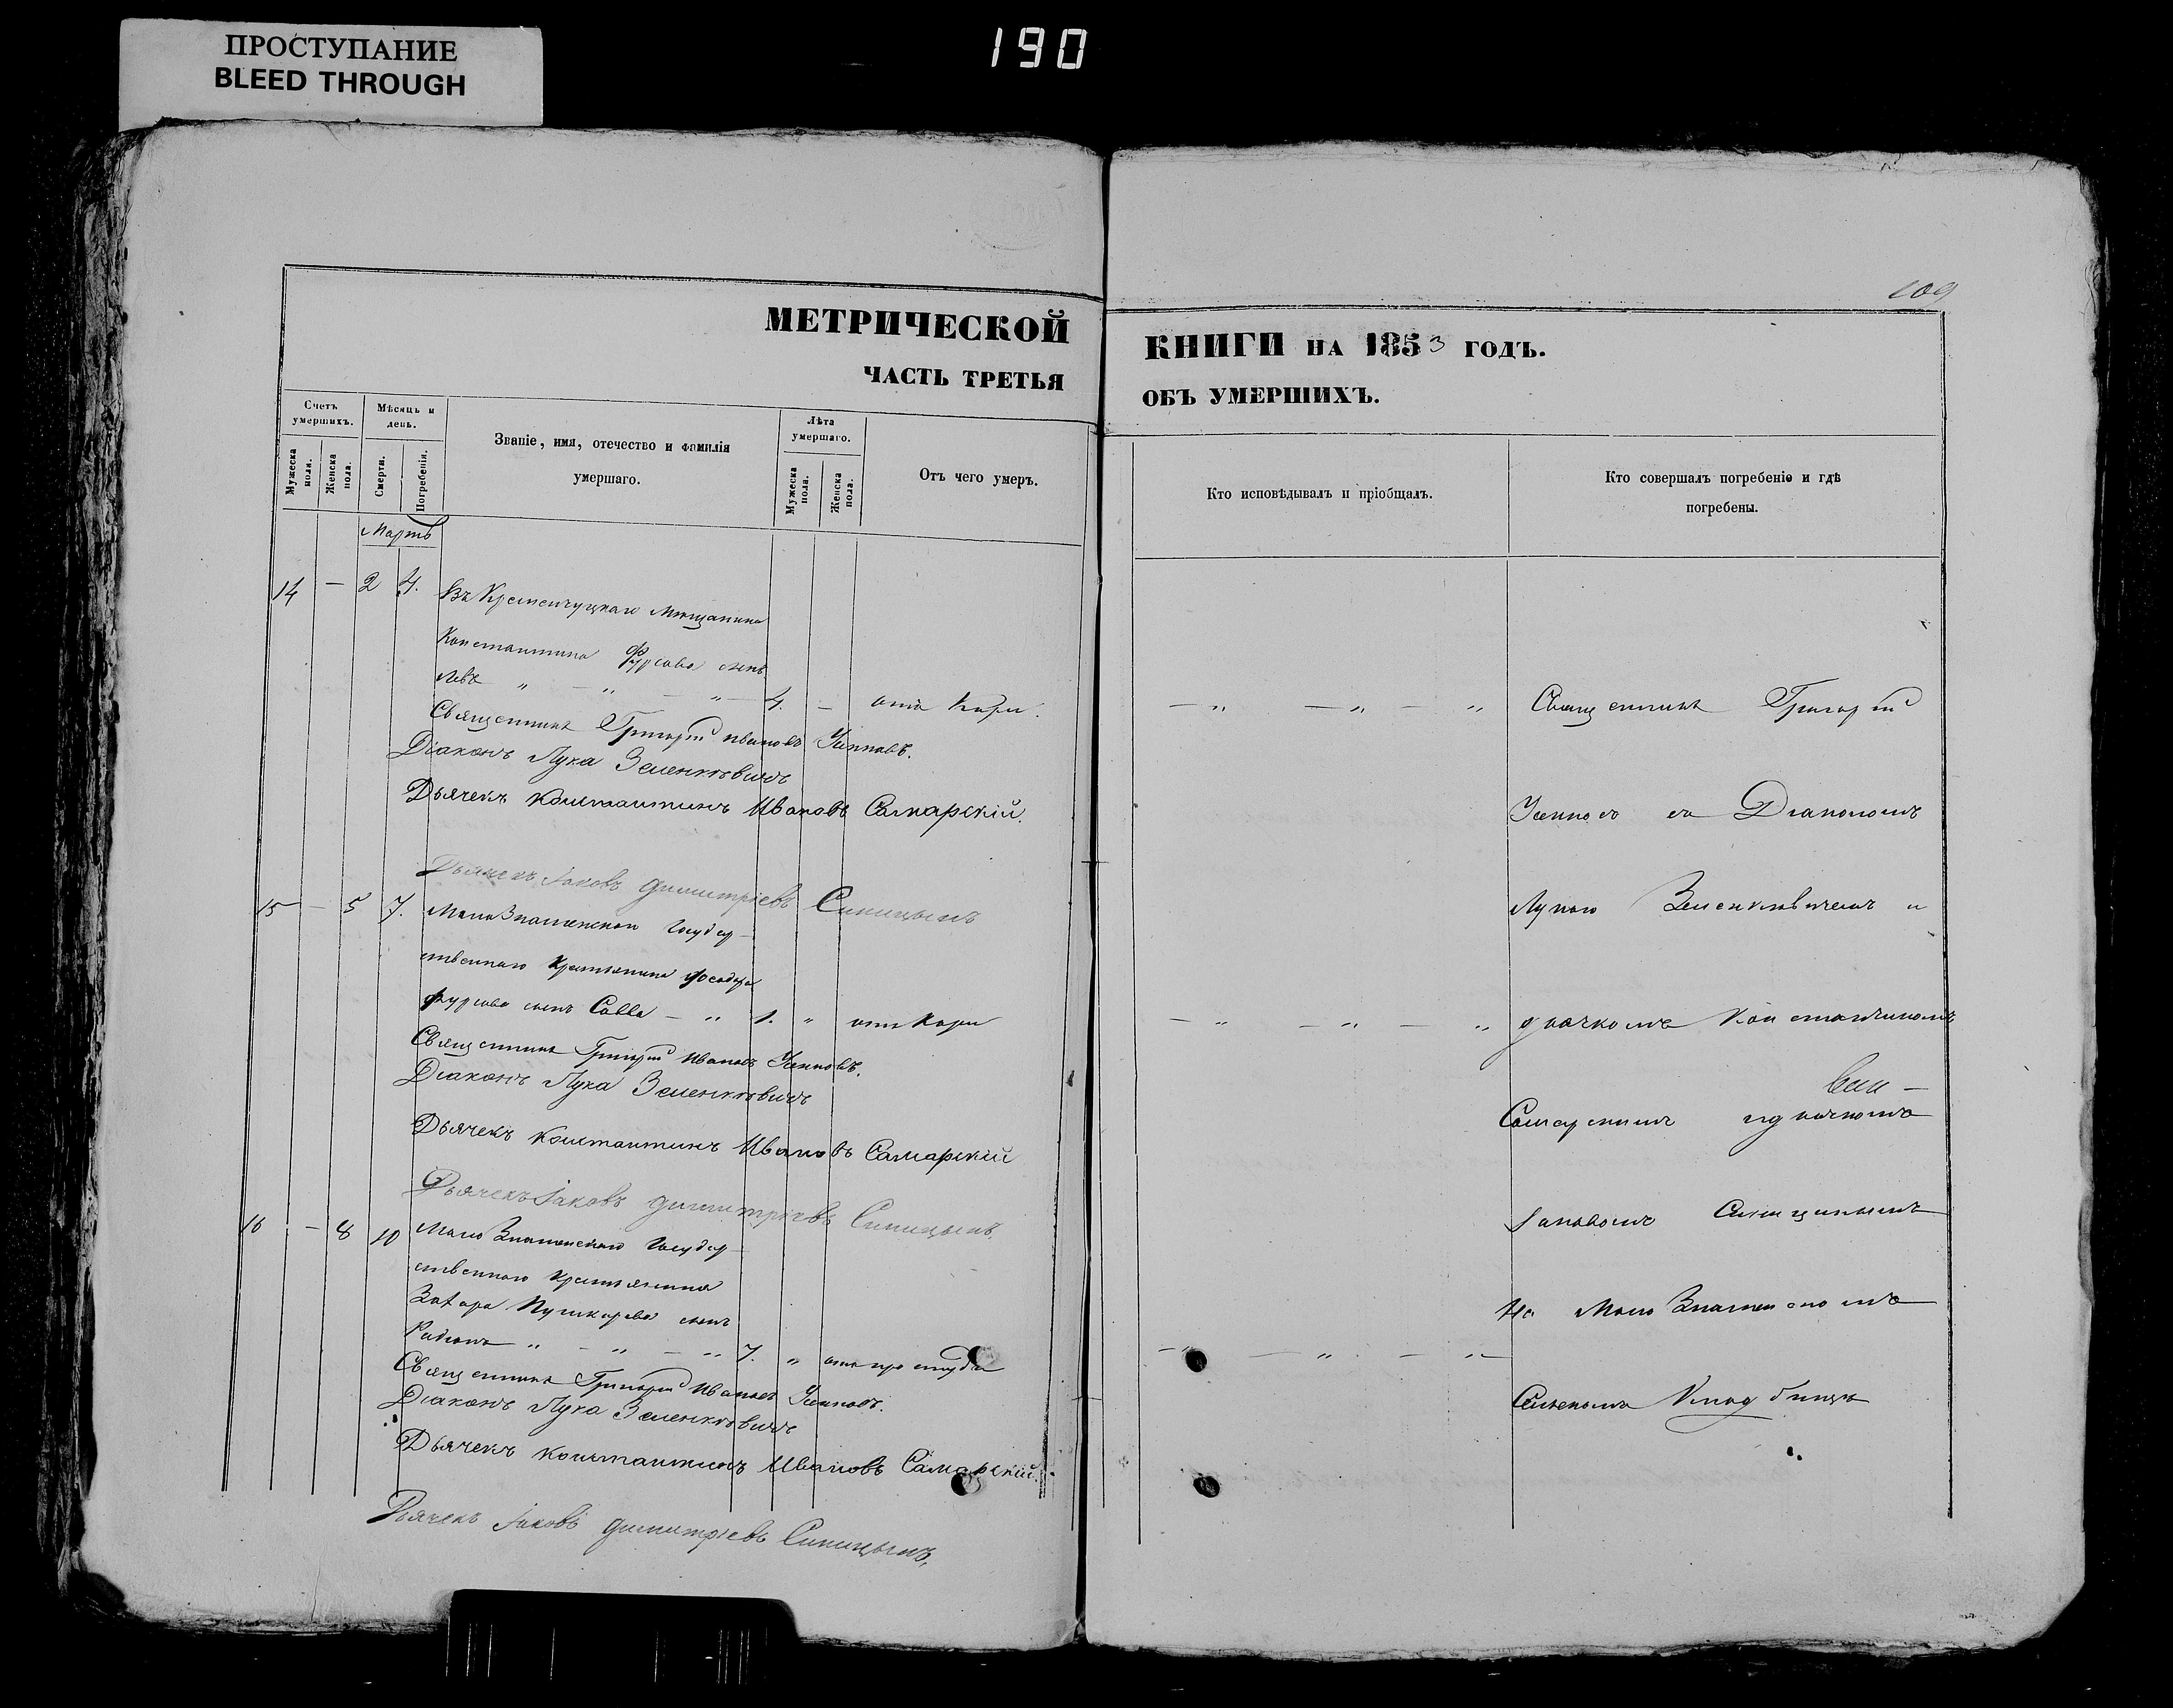 ПРОСТУПАНИЕ
BLEED THROUGH
190
109
МЕТРИЧЕСКОЙ
ЧАСТЬ ТРЕТЬЯ
Счетъ умершихъ.
Мужеска пола.
Женска пола.
Мѣсяцъ и день.
Смерти.
Погребенія.
Званіе, имя, отечество и фамилія
умершаго.
Лѣта умершаго.
Мужеска пола.
Женска пола.
Отъ чего умеръ.
Мартъ
14 — 2 4. Въ Кременчуцкаго Мѣщанина
Константина Фурсова сынъ
Левъ " — " — " — 4. — отъ Кори.
Священникъ Григорій Ивановъ
Діаконъ Лука Зеленкѣвичъ
Дьячекъ Константинъ Ивановъ Самарскій.
Дьячекъ Іаковъ Димитріевъ Синицынъ
15 — 5 7. МалоЗнаменскаго Государ-
ственнаго Крестьянина
Фурсова сынъ Савва — " 1. " отъ Кори
Священникъ Григорій Ивановъ
Діаконъ Лука Зеленкѣвичъ
Дьячекъ Константинъ Ивановъ Самарскій
Дьячекъ Іаковъ Димитріевъ Синицынъ.
16 — 8 10 МалоЗнаменскаго Государ-
ственнаго Крестьянина
Захара Пушкарева сынъ
Родіонъ " — " — " 7. " отъ простуды
Священникъ Григорій Ивановъ
Діаконъ Лука Зеленкѣвичъ
Дьячекъ Константинъ Ивановъ Самарскій.
Дьячекъ Іаковъ Димитріевъ Синицынъ,
КНИГИ НА 1853 ГОДЪ.
ОБЪ УМЕРШИХЪ.
Кто исповѣдывалъ и пріобщалъ.
Кто совершалъ погребеніе и гдѣ
погребены.
— " — " — " Священникъ Григорій
съ Діакономъ
Лукою Зеленкѣвичемъ и
— " — " — " дьячкомъ Константиномъ
Самарскимъ и дьячкомъ
Іаковомъ Синицинымъ
На МалоЗнаменскомъ
— " — " — " —
Сельскомъ Кладбищѣ